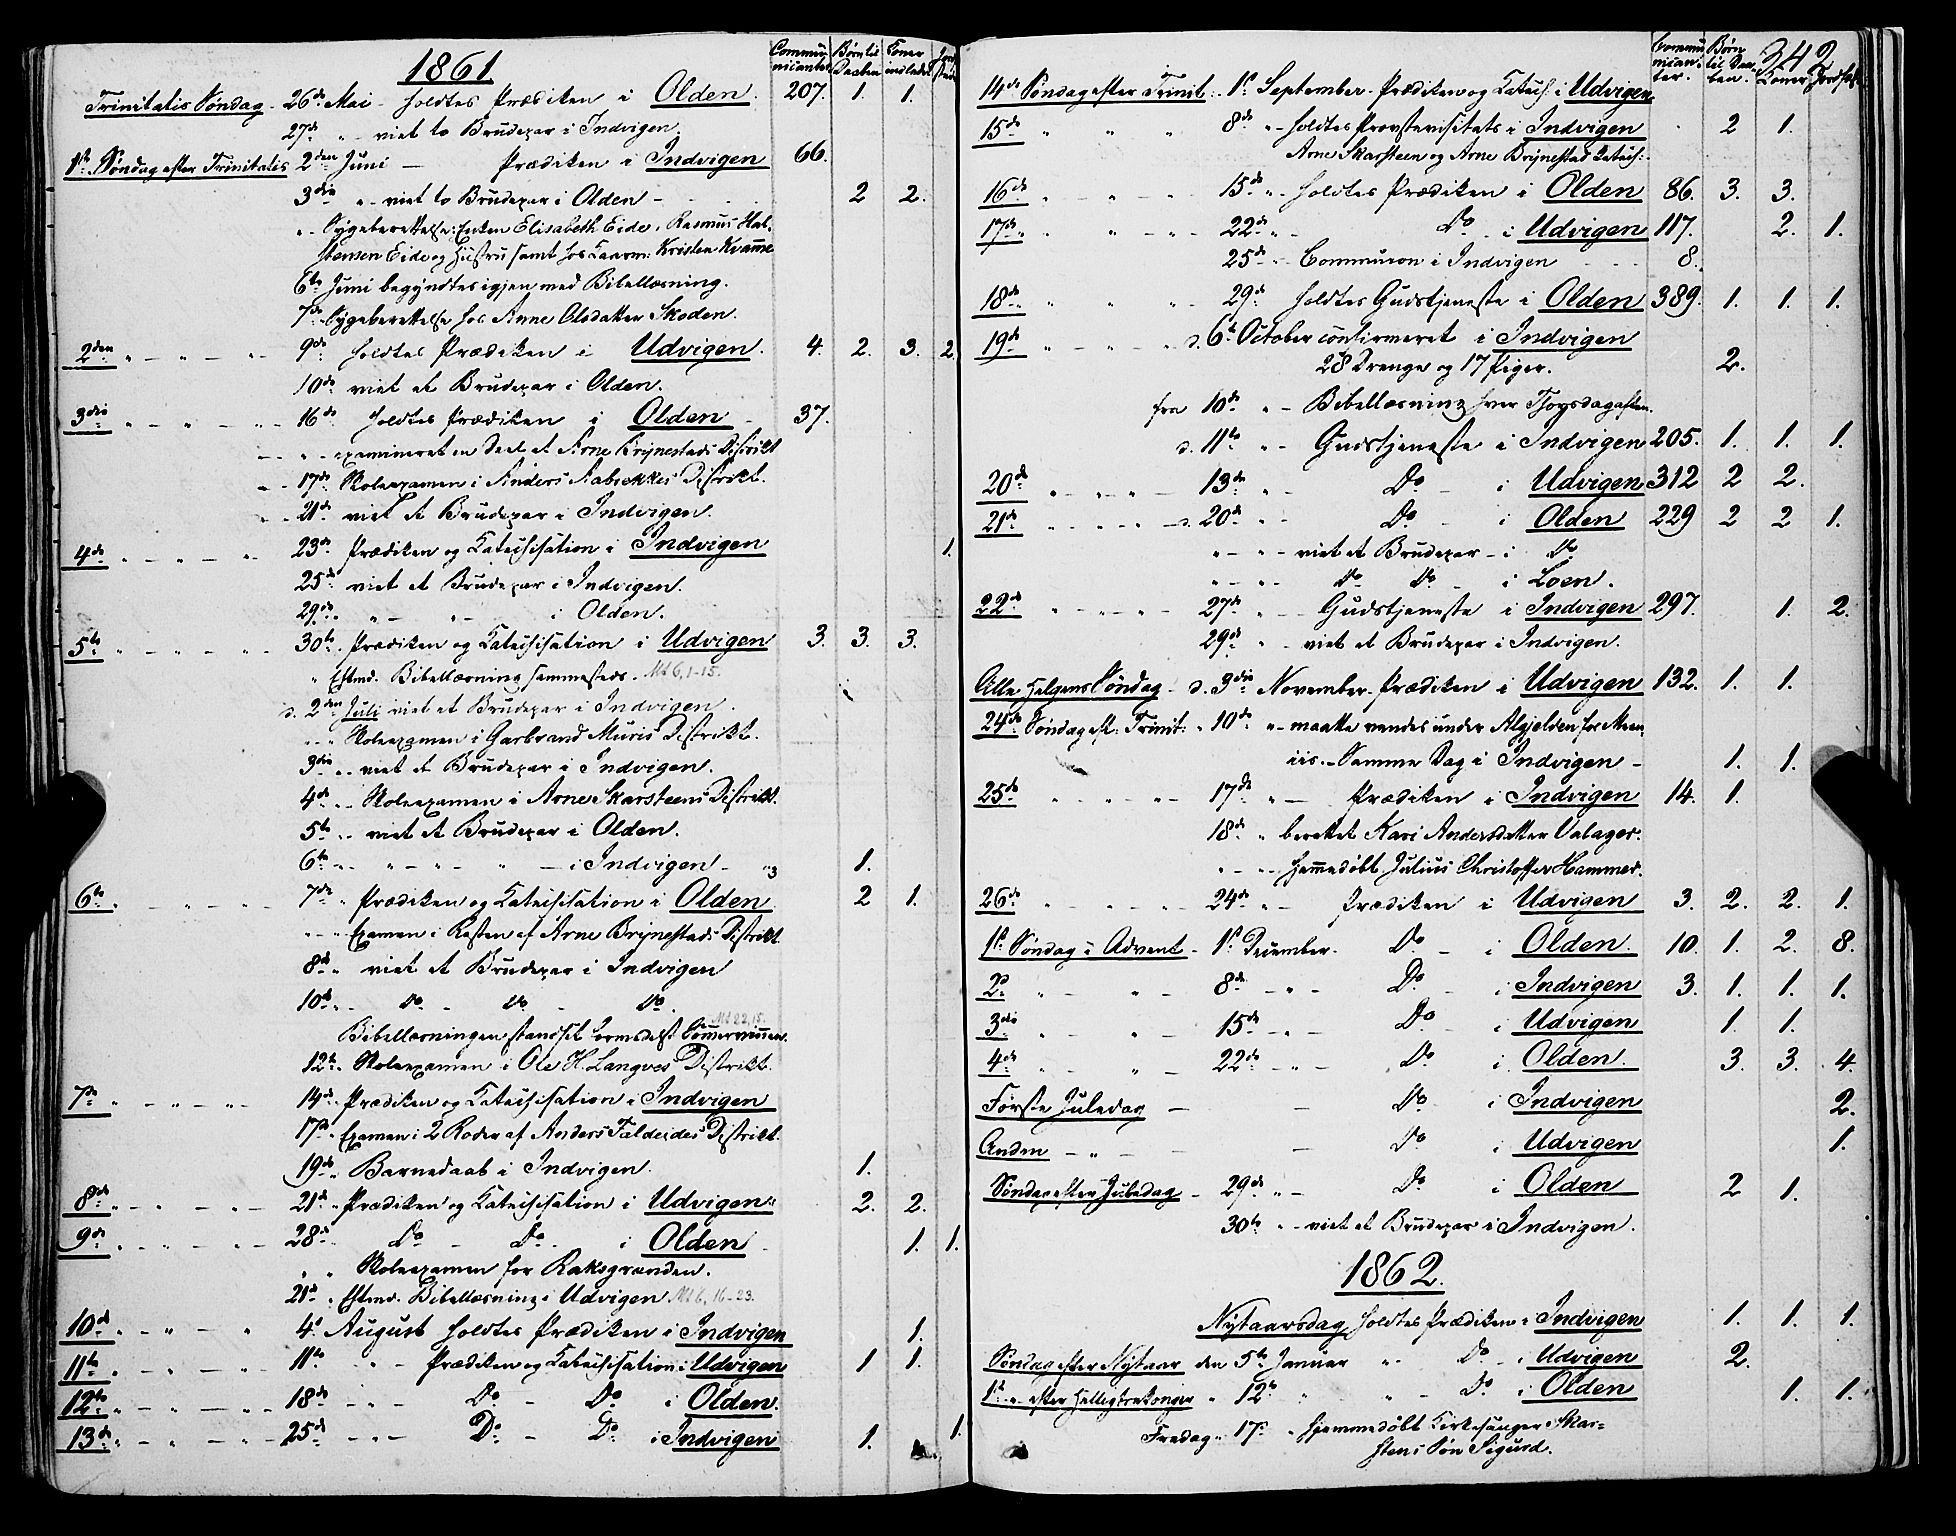 1861
Communicanter Børn til Daaben Koner indledet
Trinitatis Søndag - 26de Mai - holdtes Prædiken i Olden. 207. 1. 1.
27de " - viet to Brudepar i Indvigen.
1ste Søndag efter Trinitatis 2den Juni - Prædiken i Indvigen 66.
3die " - viet to Brudepar i Olden - 2 2.
" - Sygeberettelse: Enken Elisabeth Eide, Rasmus Hal-
stensen Eide og Hustru samt hos Kaarm: Kristen Kvamme
6te Juni begyndtes igjen med Bibellæsning.
7de - Sygeberettelse hos Anne Olsdatter Skoden.
2den " - " - " - 9de holdtes Prædiken i Udvigen. 4. 2. 3. 2.
10de viet et Brudepar i Olden.
3die " - " - " - 16de holdtes Prædiken i Olden - 37.
" - examineret en Deel af Arne Brynestads Distrikt
" - 17de Skoleexamen i Anders Aabrekkes Distrikt.
" - 21de viet et Brudepar i Indvigen.
4de " - " - " 23de Prædiken og Katechisation i Indvigen 1.
25de viet et Brudepar i Indvigen.
29de " - " - i Olden.
5te " - " - " - 30te. Prædiken og Katechisation i Udvigen 3. 3. 3.
" Eftmd. Bibellæsning sammesteds. Mt 6, 1-15.
d. 2den Juli viet et Brudepar i Indvigen.
" - " Skoleexamen i Garbrand Muris Distrikt.
3die " - viet et Brudepar i Indvigen.
4de " - Skoleexamen i Arne Skarsteens Distrikt.
5te " - viet et Brudepar i Olden.
6te " - " - " - " - i Indvigen - "3 1.
6te " - " - " - 7de " Prædiken og Katechisation i Olden 2 1.
" - " Examen i Resten af Arne Brynestads Distrikt.
8de " viet et Brudepar i Indvigen
10de " - Do - Do - Do.
Mt 22, 15.
Bibellæsningen standset formedelst Sommervinnen.
12te " Skoleexamen i Ole H. Langves Distrikt.
7de " - " - " - 14de " Prædiken og Katechisation i Indvigen
17de " Examen i 2 Roder af Anders Faldeides Distrikt.
19de " Barnedaab i Indvigen. 1.
8de " - " - " - 21de " Prædiken og Katechisation i Udvigen" 2. 2.
9de " - " - " - 28de " Do - Do - i Olden - 1. 1.
" " Skoleexamen for Raksgrenden.
21de " Eftmd. Bibellæsning i Udvigen Mt 6, 16-23.
10de " - " - " 4de August holdtes Prædiken i Indvigen 1.
11te " - " - " - 11te " - Prædiken og Katechisation i Udvigen 1 1.
12te " - " - " - 18de " - " - Do - Do i Olden.
13de " - " - " - 25de " - " - Do - Do i Indvigen 1. 1.
342
Communicanter. Børn til Daaben. Koner Jordfæst
14de Søndag efter Trinit: - 1ste September - Prædiken og Katech: i Udvigen
15de " " " 8de " - holdtes Provstevisitats i Indvigen 2 1.
Arne Skarsteen og Arne Brynestad Katech:
16de " - " - 15de " - holdtes Prædiken i Olden 86. 3. 3.
17de " - " - 22de " - Do - i Udvigen 117. 2. 1.
25de " - Communion i Indvigen - - - 8.
18de " " " 29de holdtes Gudstjeneste i Olden 389. 1. 1. 1.
19de " - " - d. 6te October confirmeret i Indvigen
28 Drenge og 17 Piger. 2.
fra 10de " - Bibellæsning hver Thorsdagaften.
d. 11te " - Gudstjeneste i Indvigen 205. 1. 1. 1.
20de " - " - " - 13de " - Do - i Udvigen 312 2 2.
21de " - " - " - d. 20de " - Do - i Olden 229 2 2 1.
" - " - viet et Brudepar - i Do
" - " - Do Do - i Loen.
22de " - " - " - 27de " - Gudstjeneste i Indvigen 297. 1. 2.
29de " - viet et Brudepar i Indvigen.
Alle Helgens Søndag - d. 3die November - Prædiken i Udvigen 132. 1. 1.
24de Søndag ef: Trinit: " 10de " - maatte vendes under Alfjelden for Meen-
iis. - Samme Dag i Indvigen - 1. 1.
25de " - " - " - 17de " - Prædiken i Indvigen 14. 1.
18de " berettet Kari Andersdatter Valager.
" - " - Hjemmedøbt Julius Christoffer Hammer.
26de " - " - " 24de " - Prædiken i Udvigen 3. 2. 2. 1.
1ste Søndag i Advent - 1ste December. Do - i Olden. 10. 1. 2. 8.
2den " - " - 8de - " - Do - i Indvigen 3. 1. 1. 1.
3die " " - 15de - " - Do - i Udvigen 1. 1.
4de " - " - 22de - " - Do i Olden. 3. 3. 4.
Første Juledag - - Do i Indvigen 2.
Anden - " - - Do i Udvigen 1.
Søndag efter Juledag - 29de " - Do i Olden 2 1.
30te " - viet et Brudepar i Indvigen.
1862.
Nytaarsdag holdtes Prædiken i Indvigen 1. 1. 1.
Søndag efter Nytaar den 5te Januar " - Do - i Udvigen 2.
1ste " - efter Helligtrekonger " 12te " " - Do i Olden 1. 1.
Fredag " 17de " Hjemmedøbt Kirkesanger Skar-
stens Søn Sigurd.